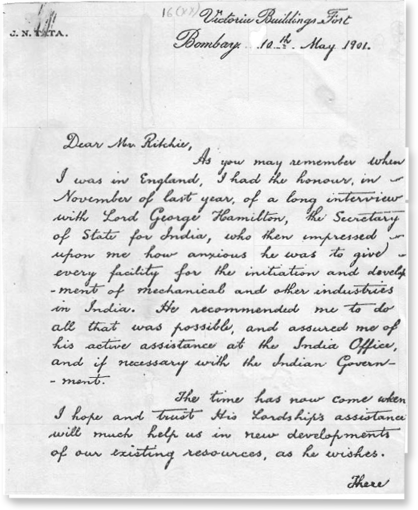 Victoria Buildings, Fort
J. N. TATA.
Bombay 10th May 1901.
Dear Mr. Ritchie,
As you may remember when
I was in England, I had the honour, in
November of last year, of a long interview
with Lord George Hamilton, the Secretary
of State for India, who then impressed
upon me how anxious he was to give
every facility for the initiation and develop
-ment of mechanical and other industries
in India. He recommended me to do
all that was possible, and assured me of
his active assistance at the India Office,
and if necessary with the Indian Govern-
-ment.
The time has now come when
I hope and trust His Lordship's assistance
will much help us in new developments
of our existing resources, as he wishes.
There